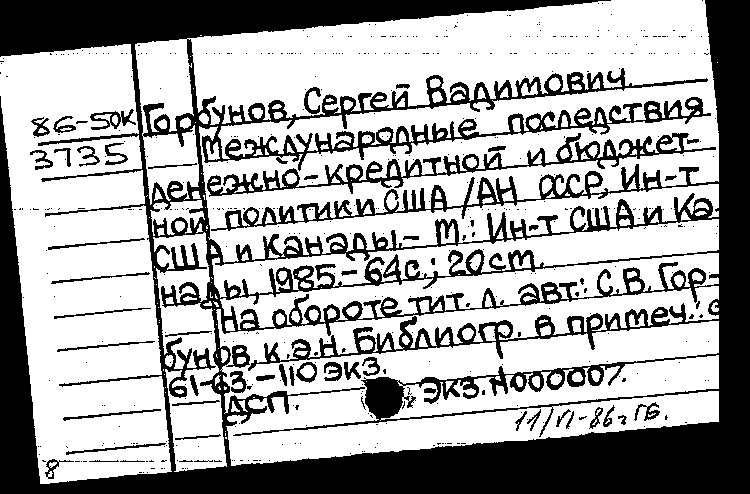 86-50К Горбунов, Сергей Вадимович.
3735 Международные последствия
денежно-кредитной и бюджет-
ной политики США /АН СССР, Ин-т
США и Канады.- М.: Ин-т США и Ка-
нады, 1985.- 64с.; 20см.
На обороте тит. л. авт.: С.В. Гор-
бунов, к.э.н. Библиогр. в примеч.: с
61-63. - 110 экз.
ДСП. Экз. N000007.
11/VI-86г ГБ.
8